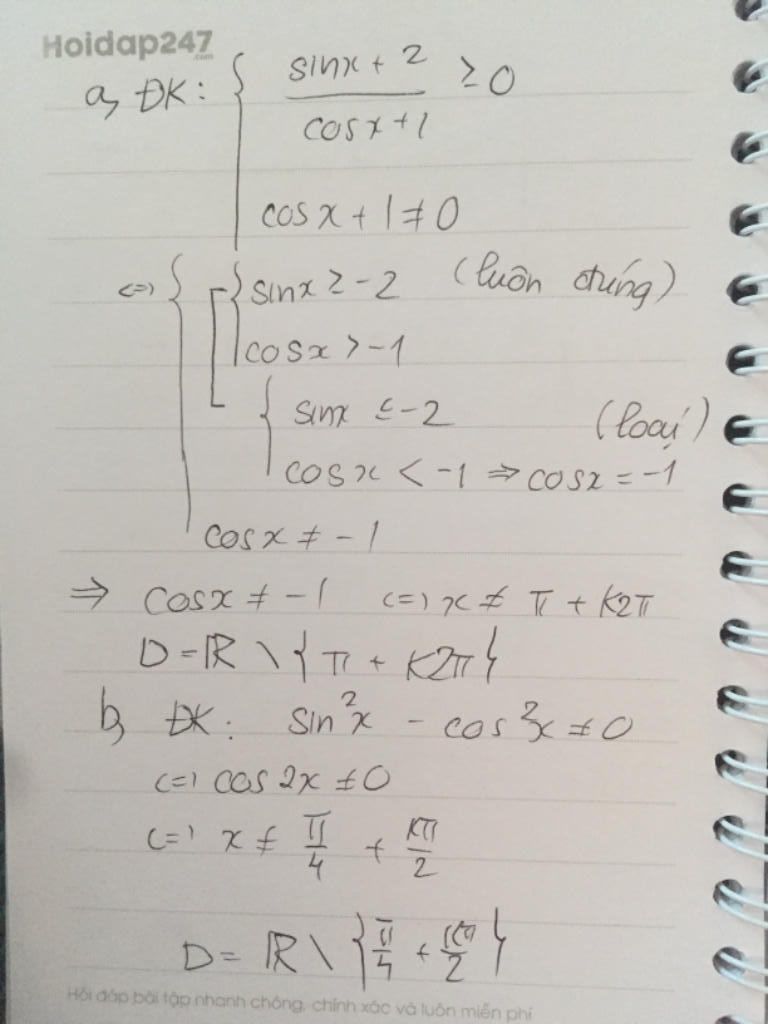 Hoidap247
.com
a, ĐK: { (sinx + 2)/(cosx+1) ≥ 0
cosx + 1 ≠ 0
<=> { [ { sinx ≥ -2 (luôn đúng)
cosx > -1
{ sinx ≤ -2 (loại)
cosx < -1 => cosx = -1
cosx ≠ -1
=> cosx ≠ -1 <=> x ≠ π + k2π
D = ℝ \ { π + k2π }
b, ĐK: sin²x - cos²x ≠ 0
<=> cos2x ≠ 0
<=> x ≠ π/4 + kπ/2
D = ℝ \ { π/4 + kπ/2 }
Hỏi đáp bài tập nhanh chóng, chính xác và luôn miễn phí